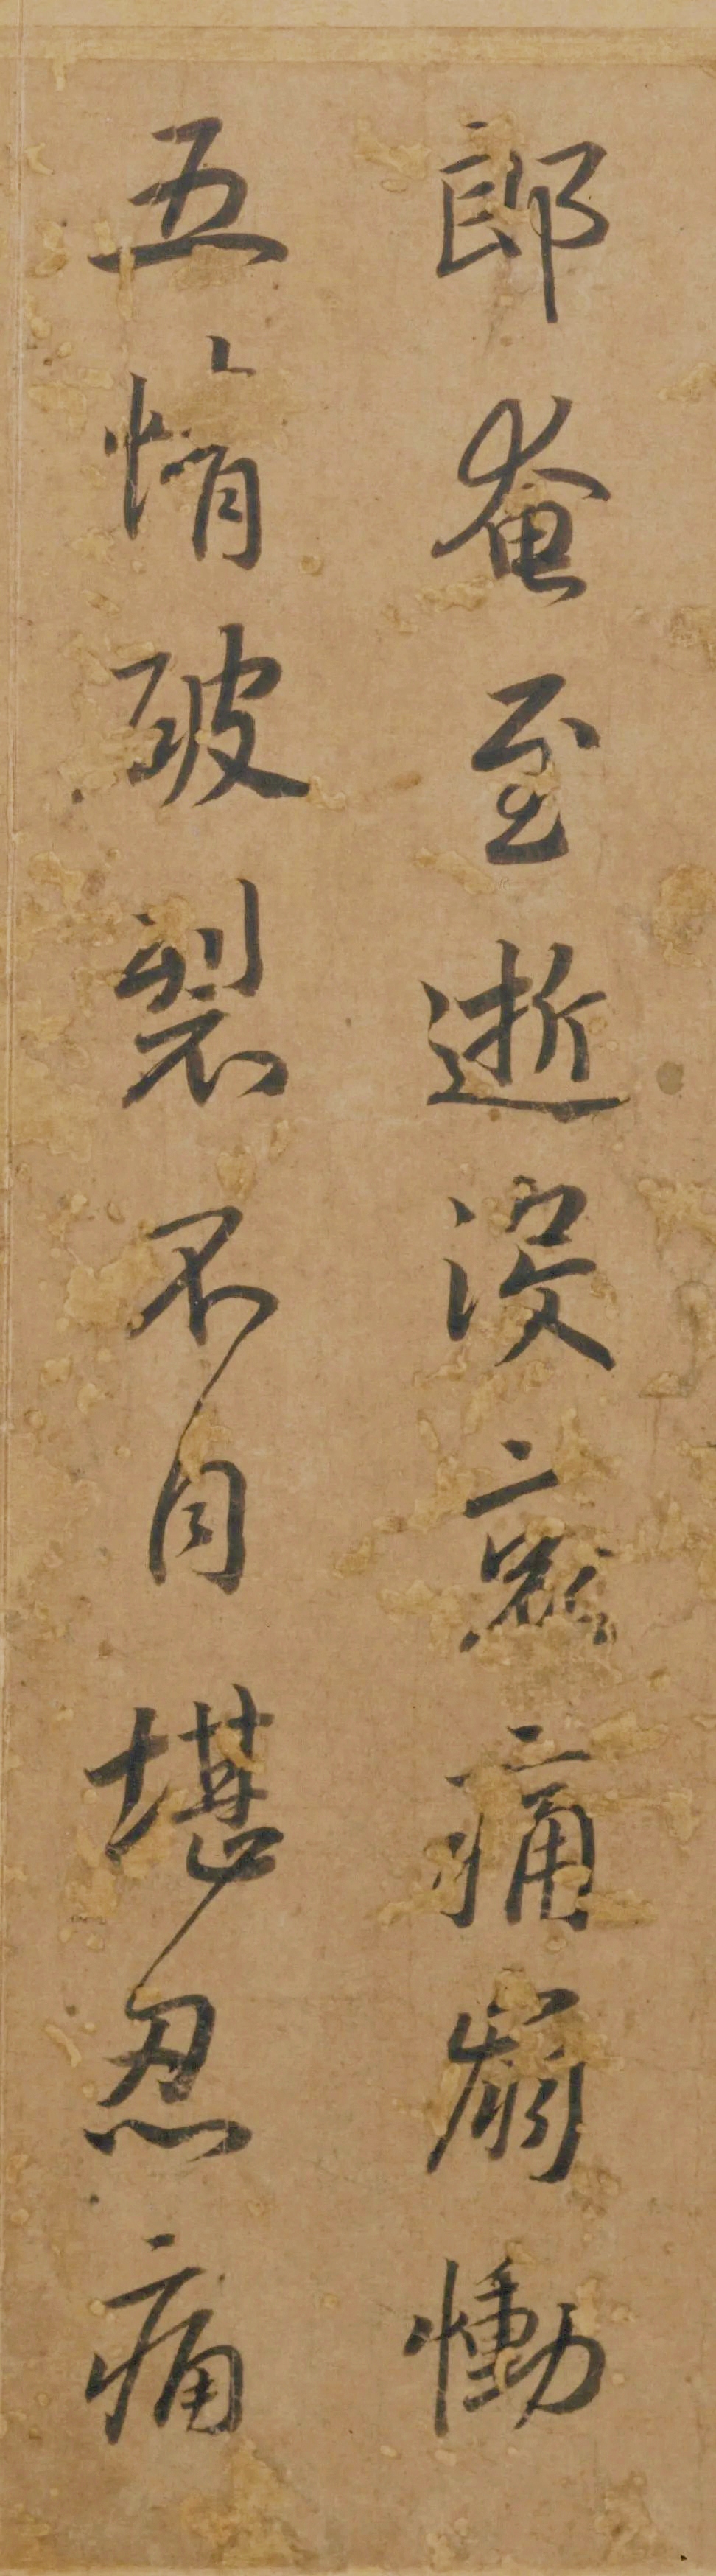 郎奄至逝没哀痛崩慟
五情破裂不自堪忍痛